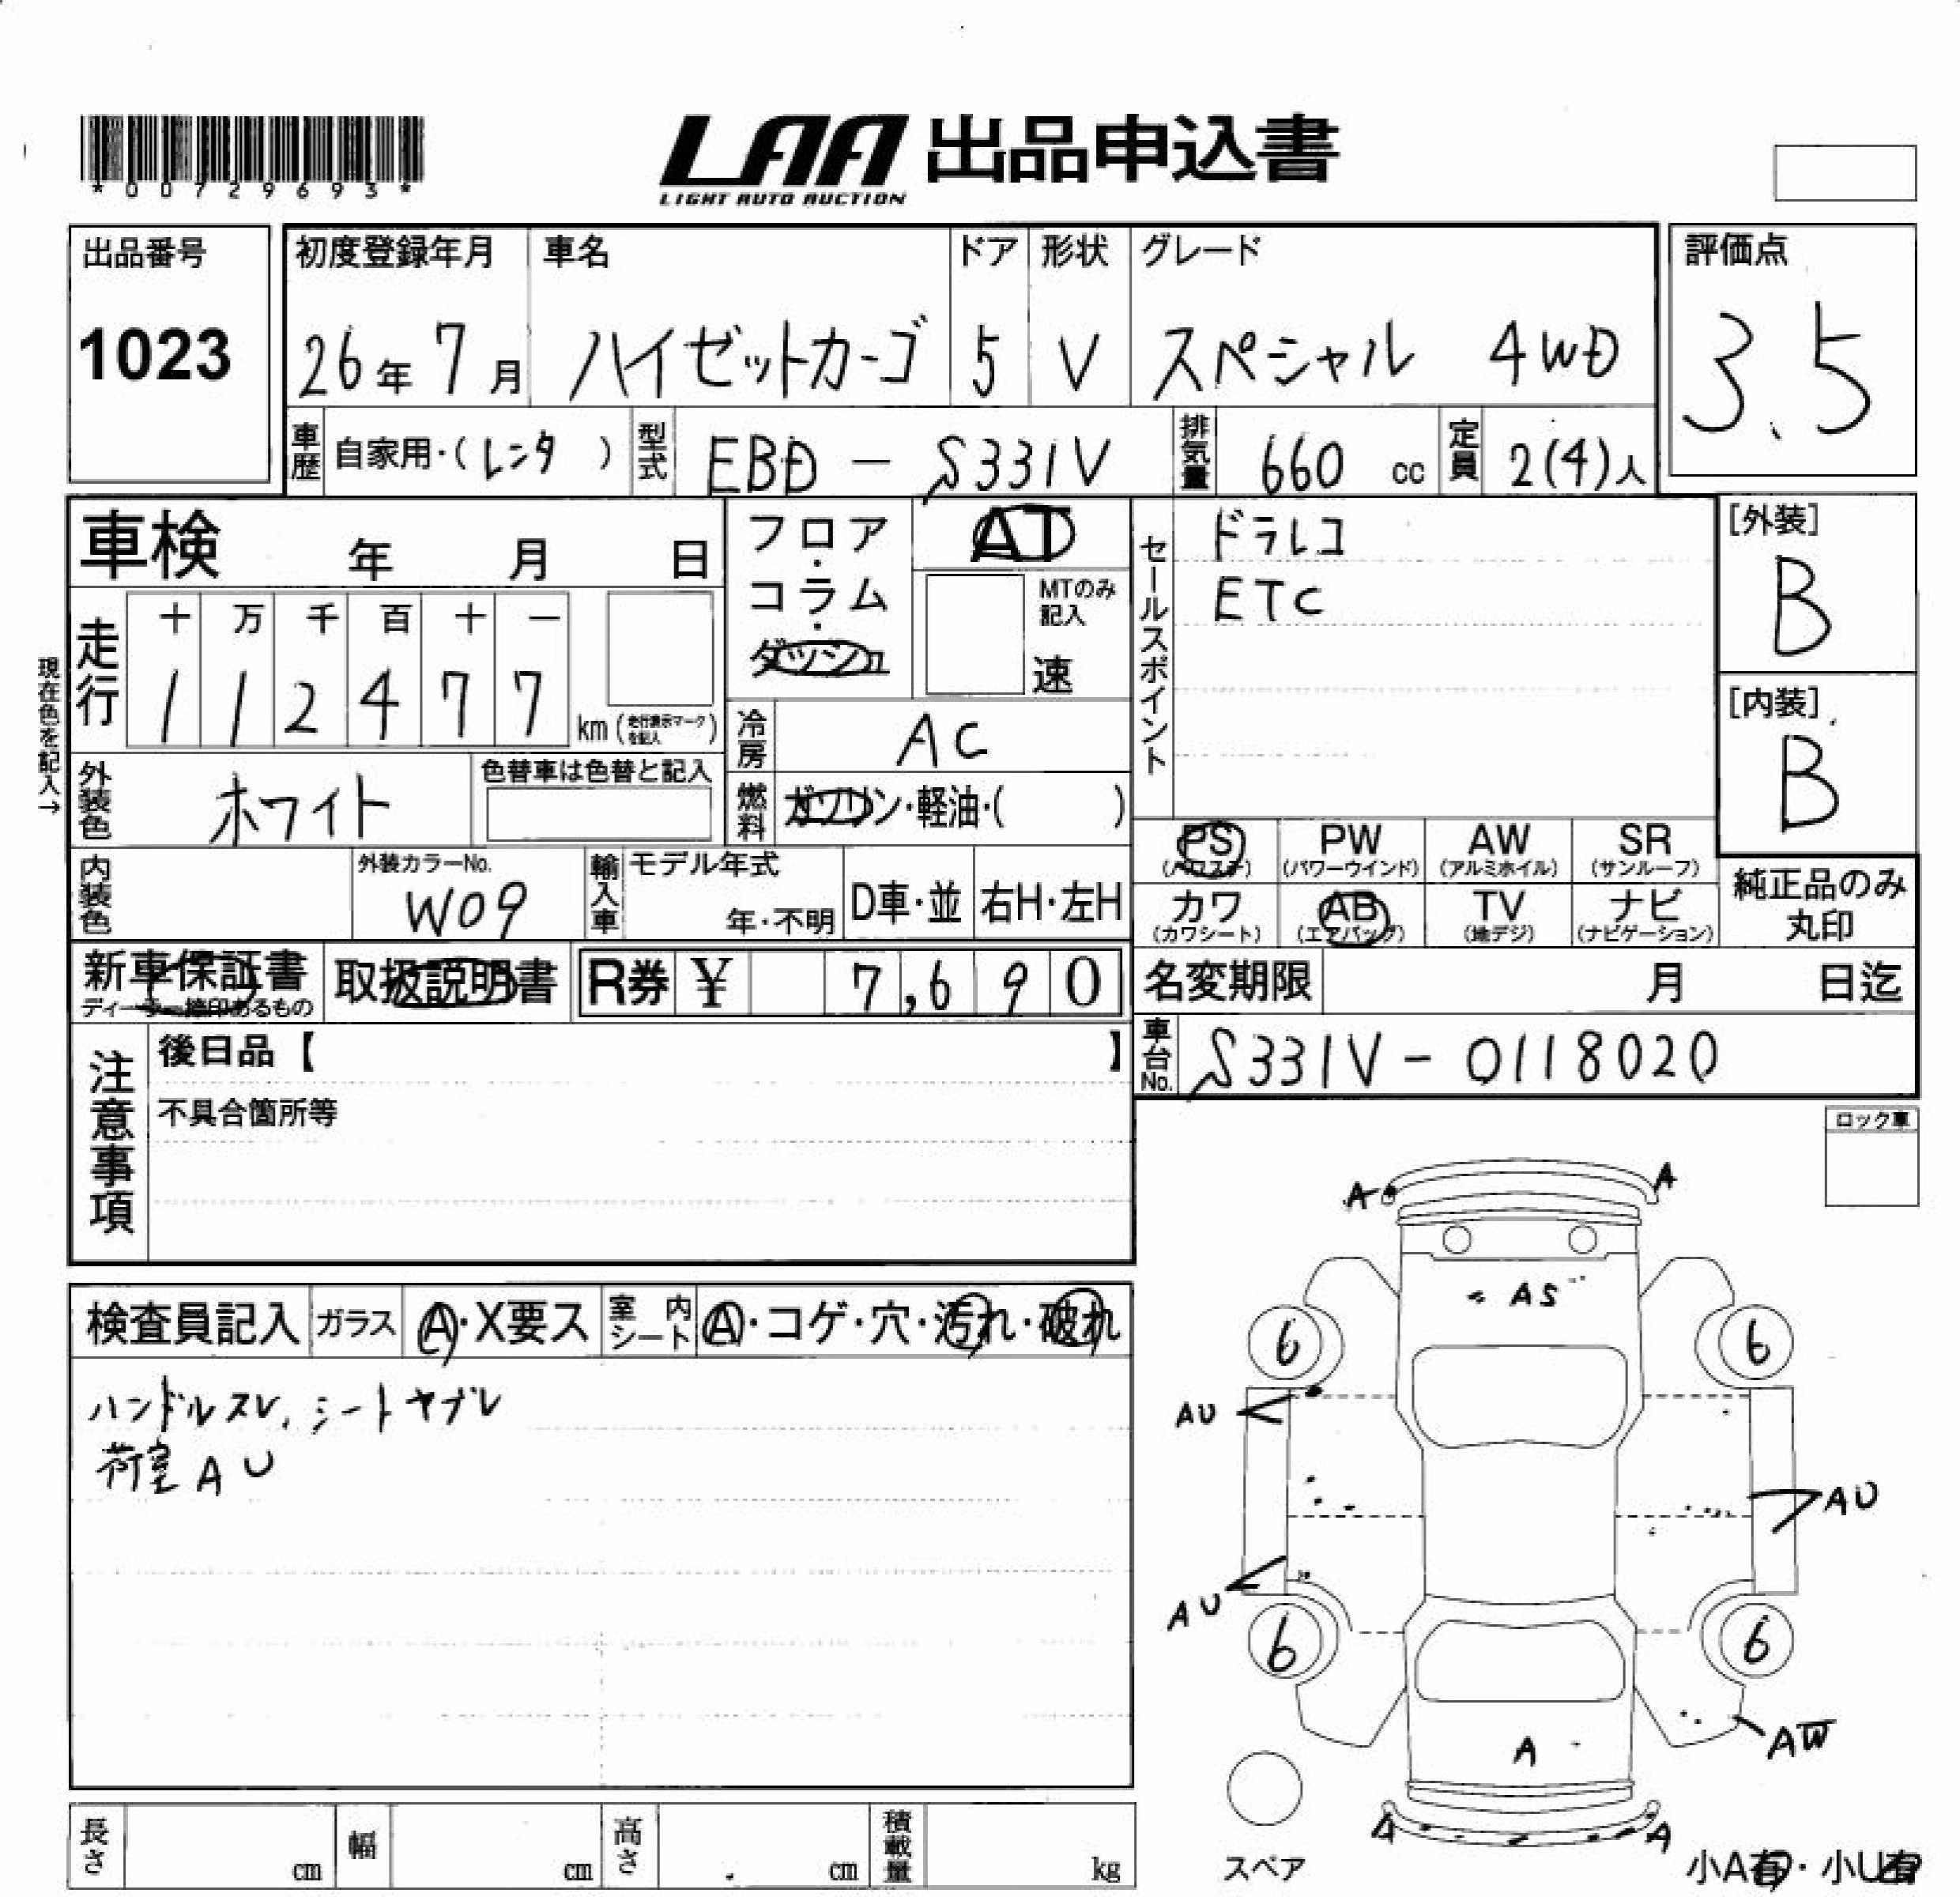 *00729693*
LAA 出品申込書
LIGHT AUTO AUCTION
出品番号 初度登録年月 車名 ドア 形状 グレード 評価点
1023 26年 7月 ハイゼットカーゴ 5 V スペシャル 4WD 3.5
車歴 自家用・(レンタ) 型式 EBD - S331V 排気量 660 cc 定員 2(4)人
車検 年 月 日 フロア・コラム・ダッシュ AT
MTのみ記入 速
セールスポイント ドラレコ
ETC
[外装]
B
[内装]
B
現在色を記入→
走行 十 万 千 百 十 一
1 1 2 4 7 7 km (走行表示マークを記入)
冷房 AC
外装色 ホワイト 色替車は色替と記入
燃料 ガソリン・軽油・( )
PS PW AW SR
(パワステ) (パワーウインド) (アルミホイル) (サンルーフ)
カワ AB TV ナビ
(カワシート) (エアバッグ) (地デジ) (ナビゲーション)
純正品のみ
丸印
内装色 外装カラーNo. W09 輸入車 モデル年式 年・不明 D車・並 右H・左H
新車保証書 取扱説明書 R券 ¥ 7,690
ディーラー捺印あるもの
名変期限 月 日迄
車台No. S331V-0118020
注意事項 後日品【 】
不具合箇所等
ロック車
検査員記入 ガラス A・X要ス 室内シート A・コゲ・穴・汚れ・破れ
ハンドルスレ、シートヤブレ
荷室AU
A A
AS
6 6
AU
AU
AU
6 6
AW
A
A A
スペア
小A有・小U有
長さ cm 幅 cm 高さ cm 積載量 kg